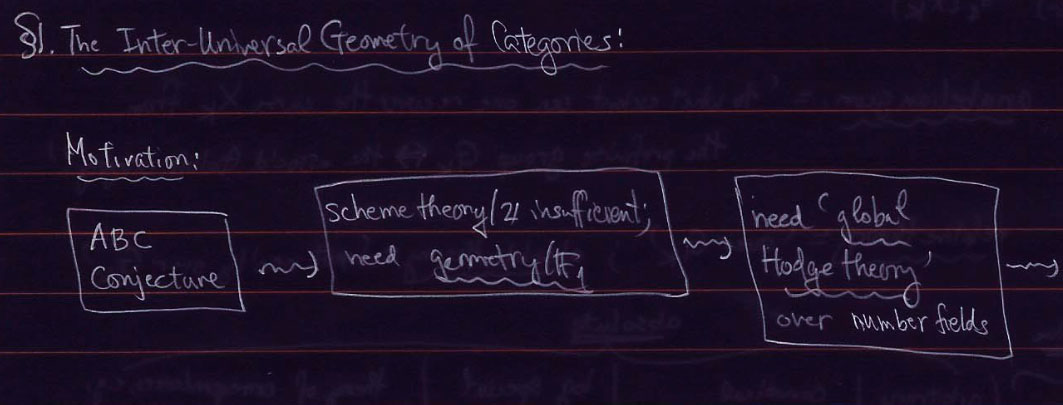 §1. The Inter-Universal Geometry of Categories:
Motivation:
ABC
Conjecture
scheme theory/ℤ insufficient;
need geometry/𝔽₁
need 'global
Hodge theory'
over number fields